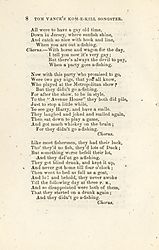 8 TOM VANCE'S KOM-E-KILL SONGSTER.
All were to have a gay old time,
Down in Jersey, where sunfish shine,
And catch so nice with hook and line,
When you are out a-fishing.
Chorus.—With horse and wagon for the day,
I tell you now it's very gay;
But there's always the devil to pay,
When a party goes a-fishing.
Now with this party who promised to go,
Were two gay nigs, that you all know,
Who played at the Metropolitan show?
But they didn't go a-fishing.
For after the show, to be in style,
To the "Avenue House" they both did pile,
Just to stop a little while,
To see gay Harry, and have a smile.
They laughed and joked and smiled again,
Then sat down to play a game,
And got much whiskey on the brain;
For they didn't go a-fishing.
Chorus.
Like most fishermen, they had their luck,
Tho' they'd no fish, they'd lots of
But nothing mended their little lot,
And they didn't go a-fishing.
They got blind drunk, and kept it up,
And never got home till four o'clock;
Then went to bed as full as a goat,
And lo! and behold, they never awoke
Till the following day at three P. M.,
And so disappointed were both of them,
That they started on a drunk again,
And they didn't go a-fishing.
Chorus.